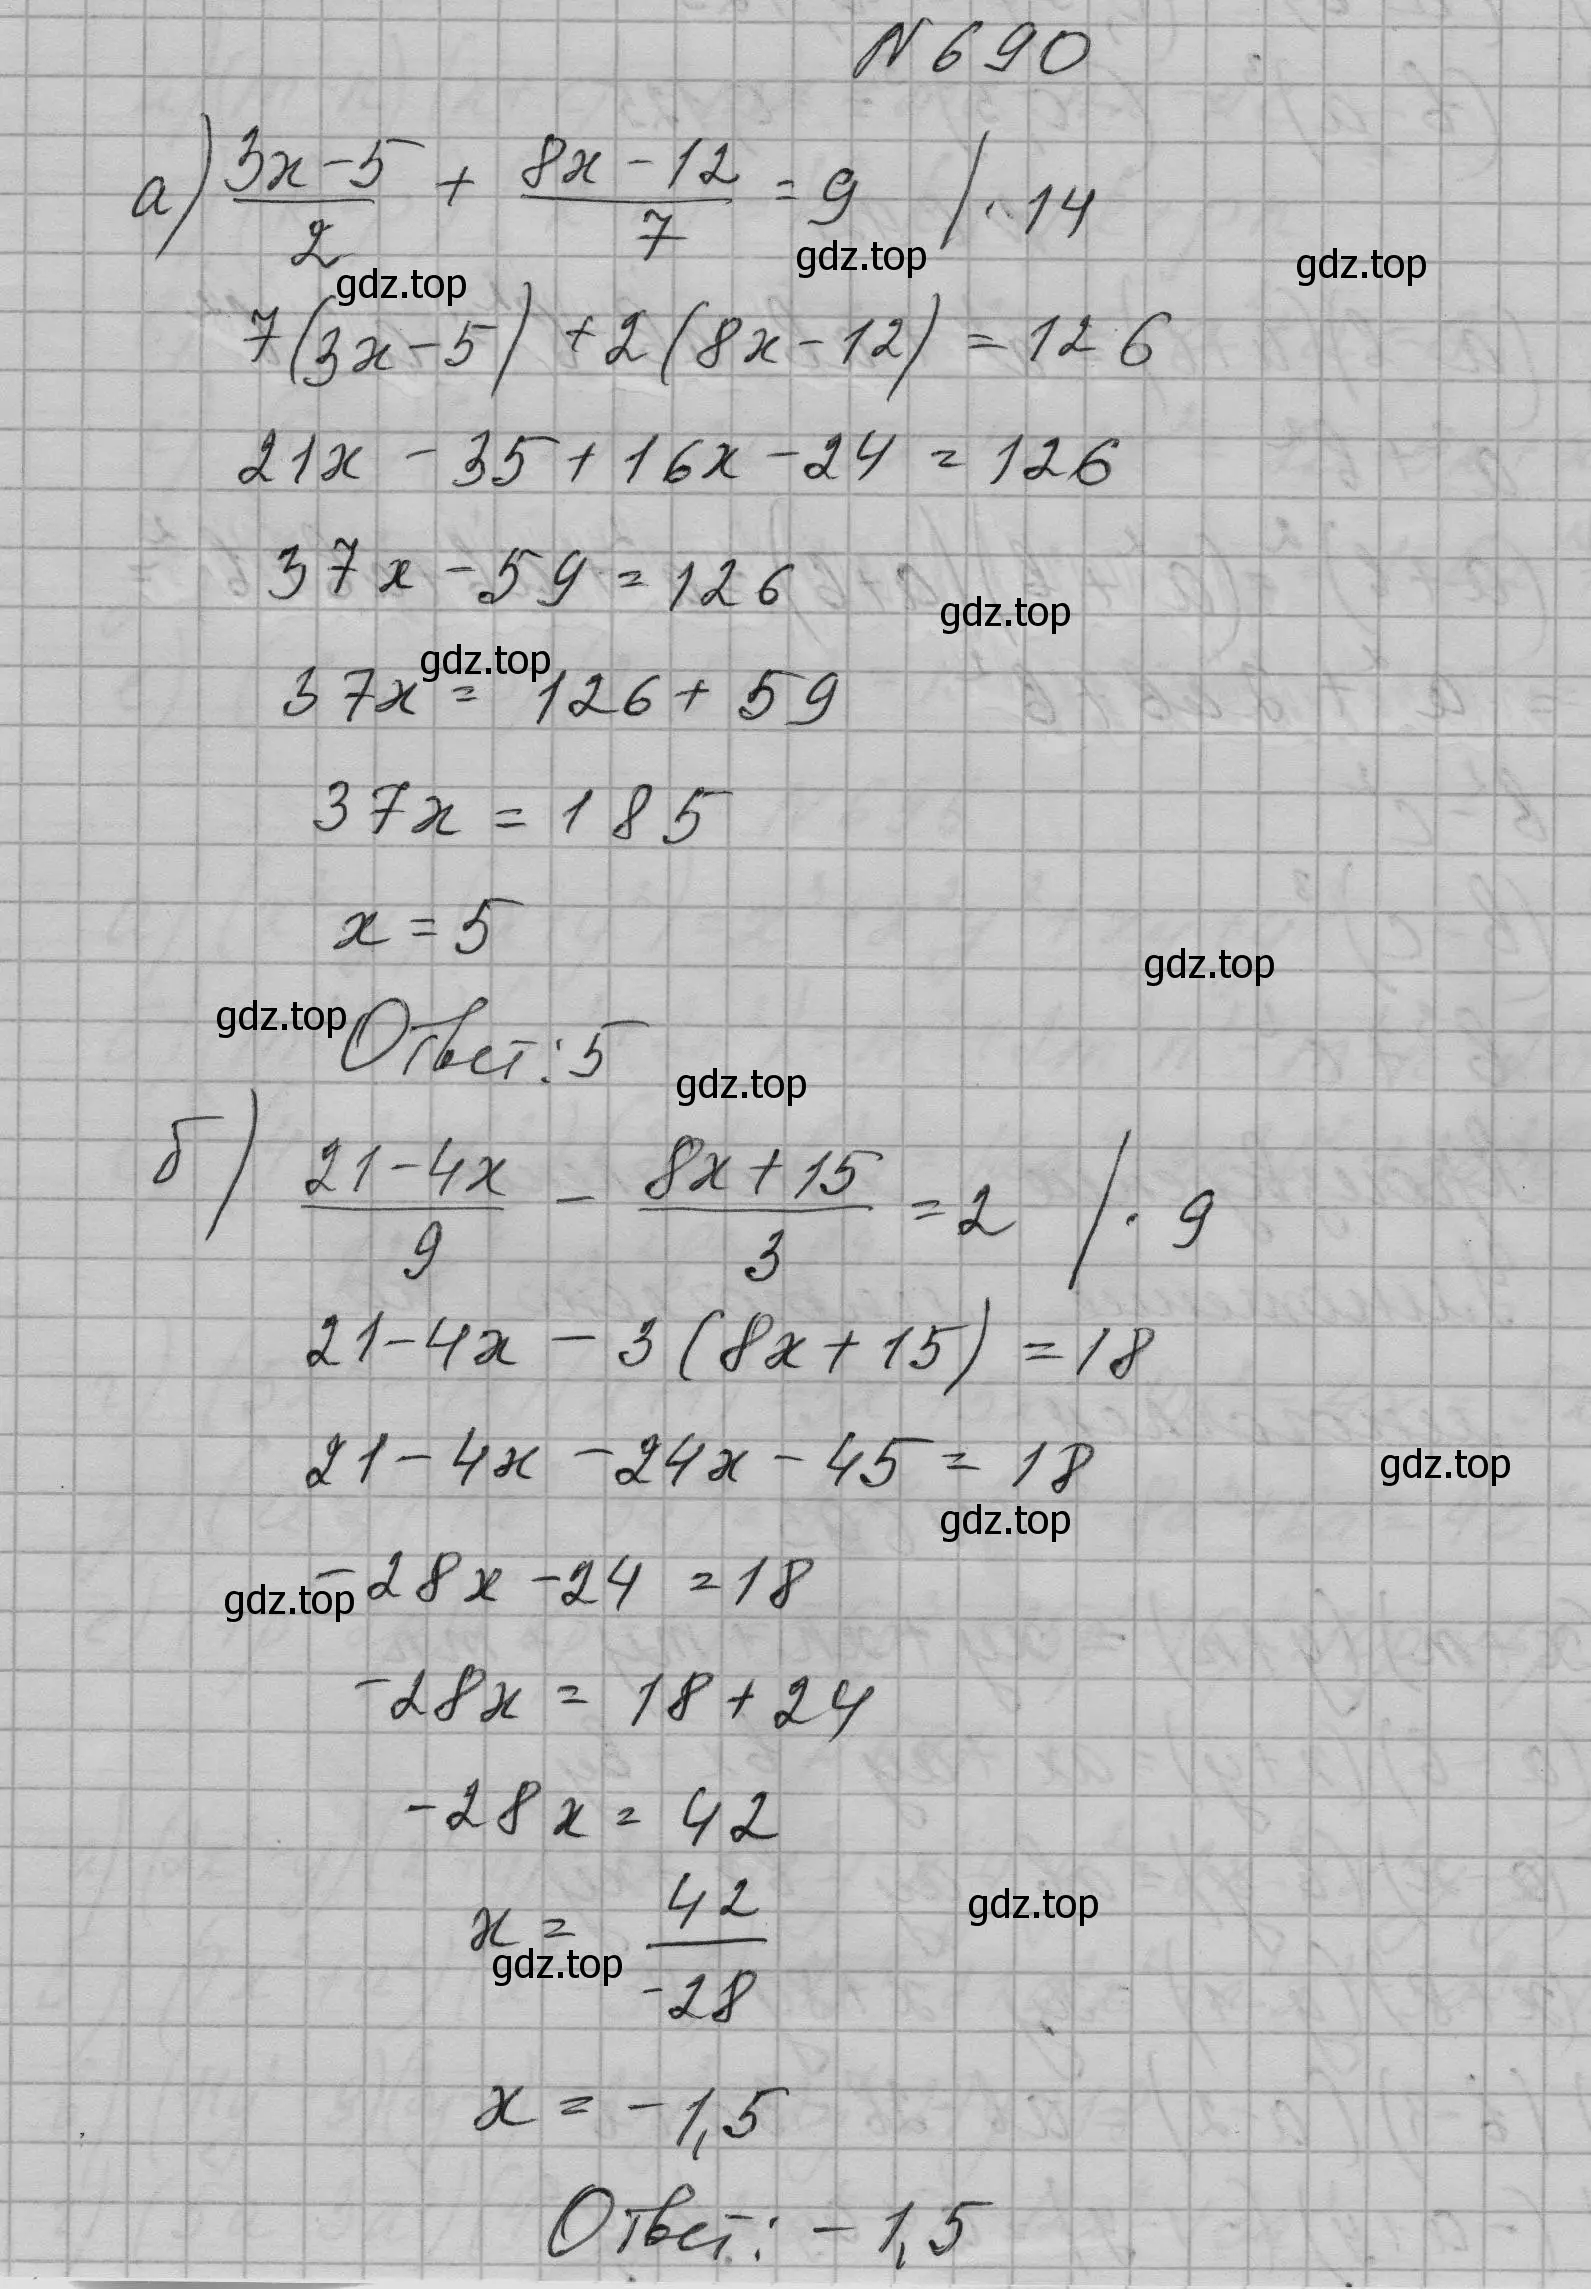 N 690
а) (3x-5)/2 + (8x-12)/7 = 9 /·14
gdz.top gdz.top gdz.top
7(3x-5) + 2(8x-12) = 126
21x - 35 + 16x - 24 = 126
37x - 59 = 126
gdz.top
gdz.top
37x = 126 + 59
37x = 185
x = 5
gdz.top
gdz.top
Ответ: 5
gdz.top
б) (21-4x)/9 - (8x+15)/3 = 2 /·9
21-4x - 3(8x+15) = 18
21-4x - 24x - 45 = 18
gdz.top
gdz.top
-28x - 24 = 18
gdz.top
-28x = 18 + 24
-28x = 42
x = 42/-28
gdz.top
gdz.top
x = -1,5
Ответ: -1,5